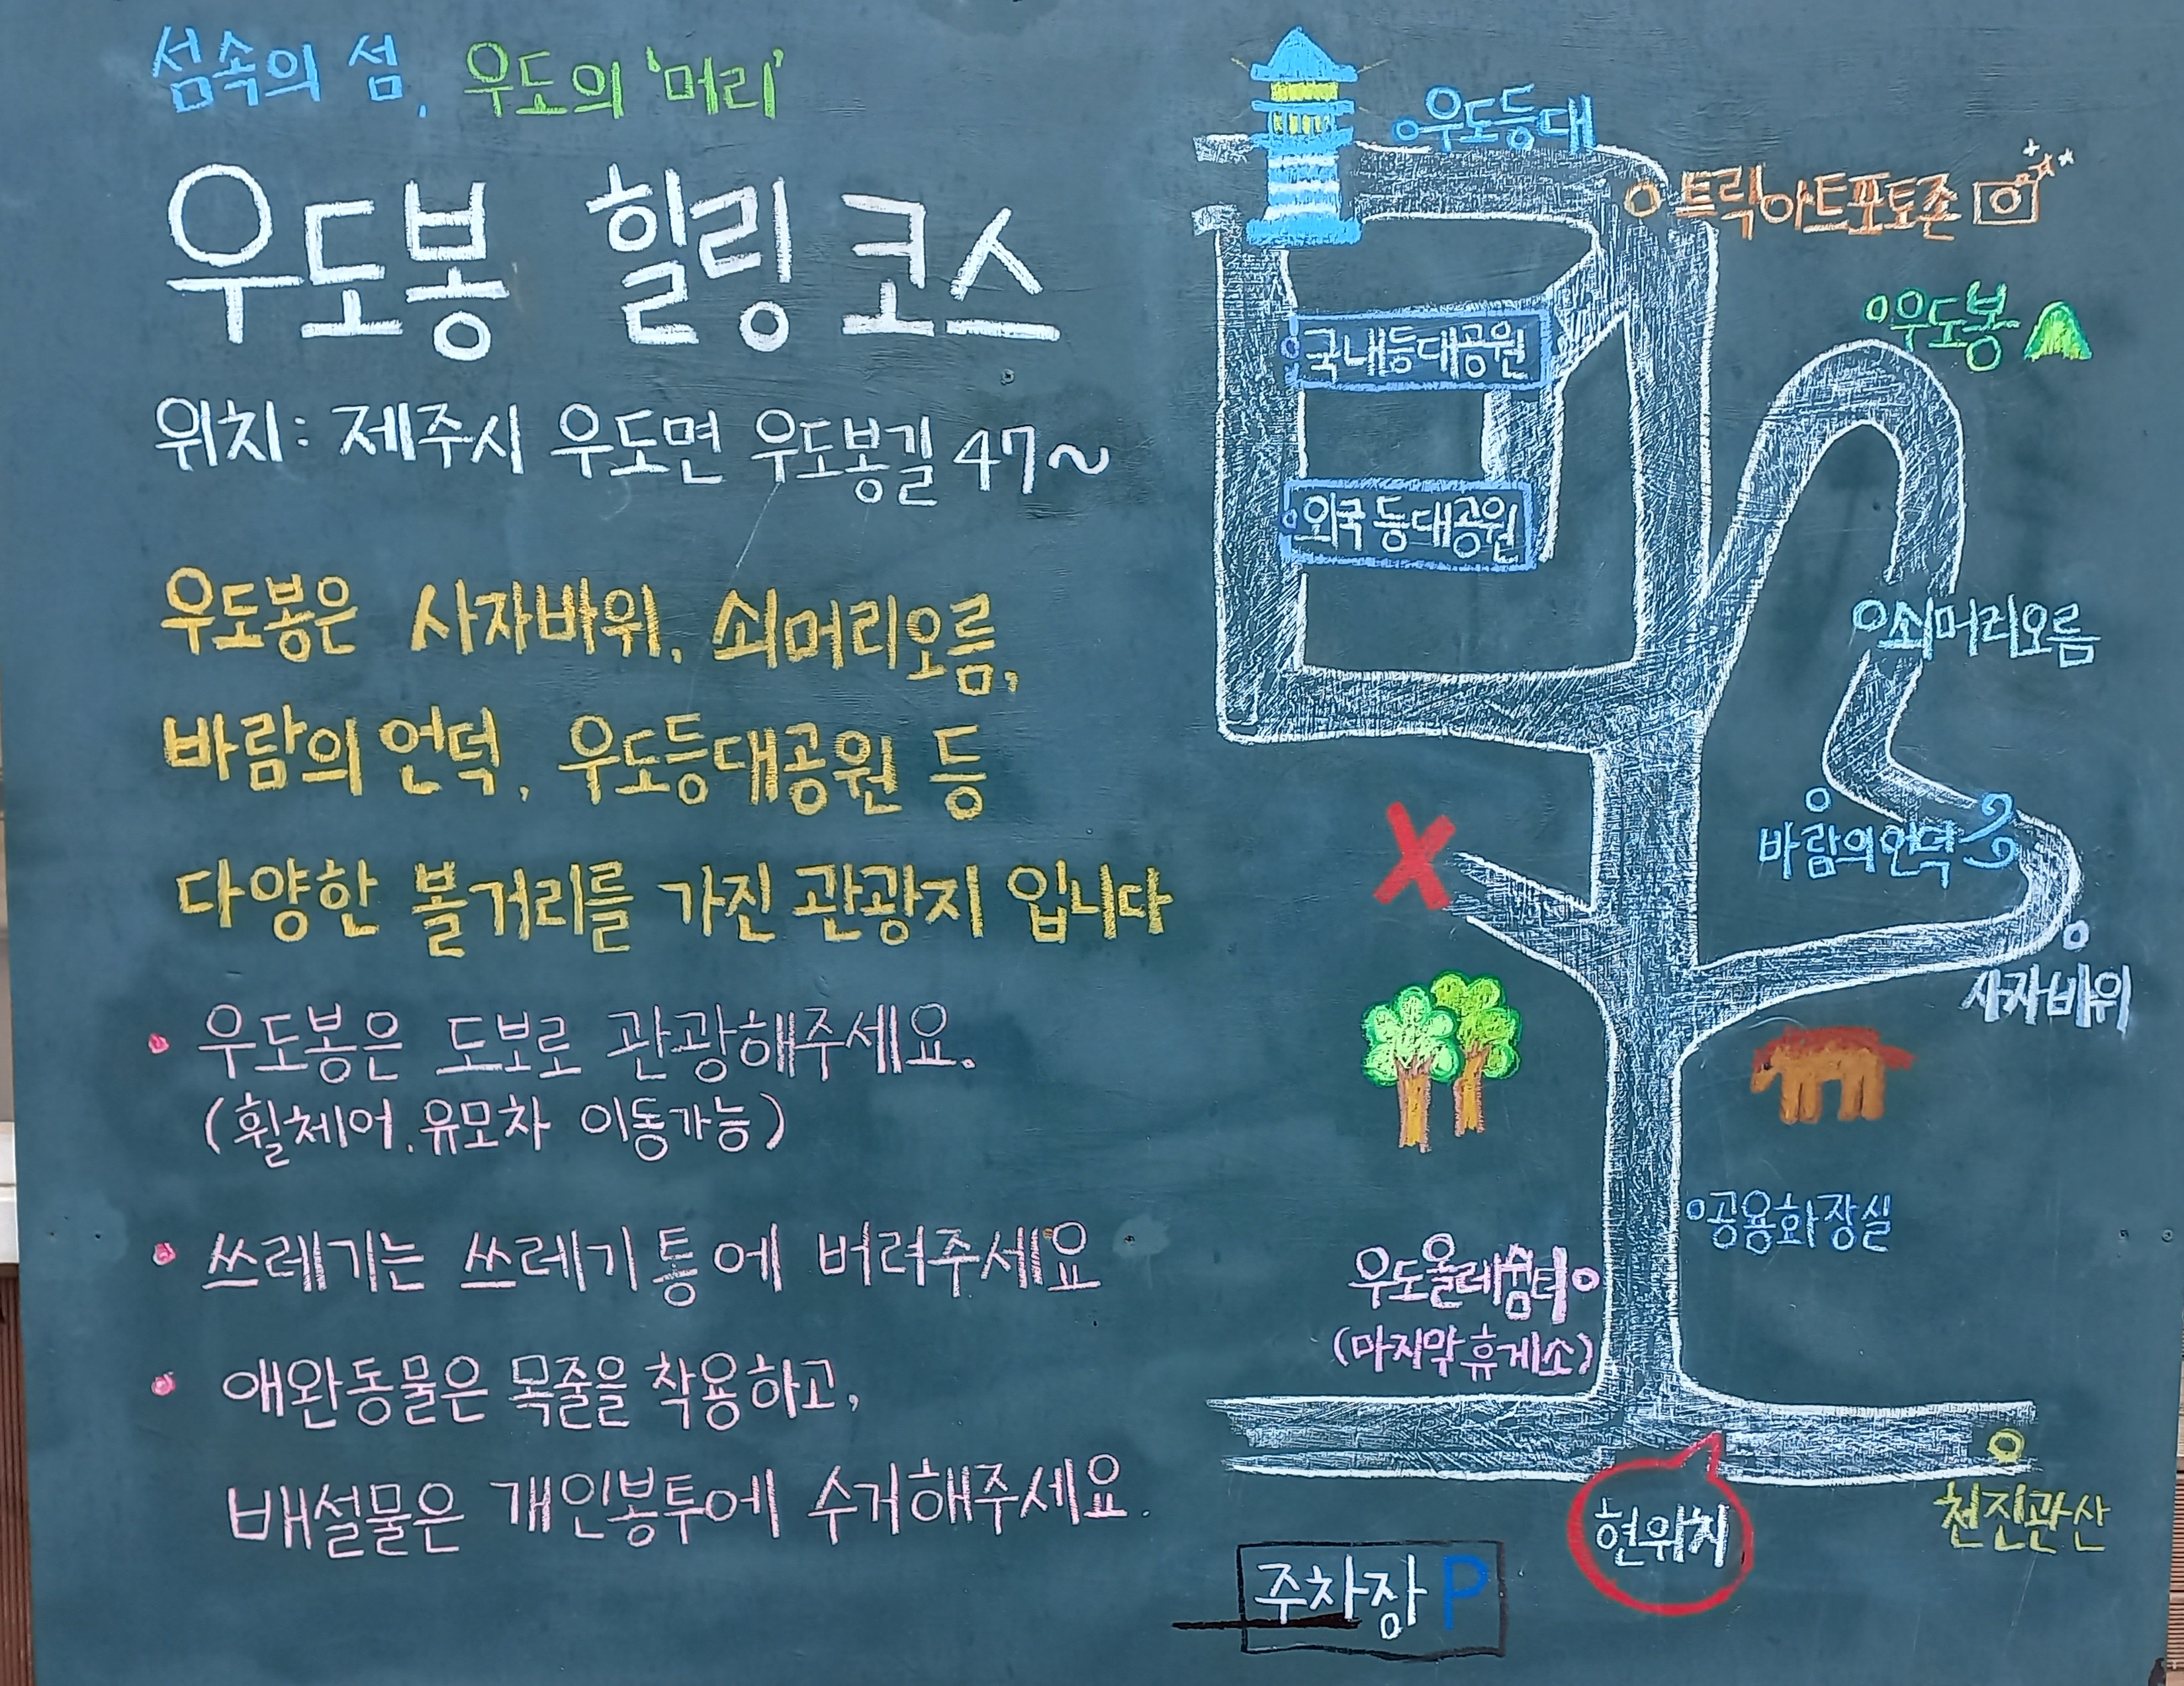 섬속의 섬, 우도의 '머리'
우도봉 힐링 코스
위치: 제주시 우도면 우도봉길 47~
우도봉은 사자바위, 쇠머리오름,
바람의 언덕, 우도등대공원 등
다양한 볼거리를 가진 관광지 입니다
• 우도봉은 도보로 관광해주세요.
(휠체어.유모차 이동가능)
• 쓰레기는 쓰레기통에 버려주세요
• 애완동물은 목줄을 착용하고,
배설물은 개인봉투에 수거해주세요.
우도등대
트릭아트포토존
우도봉
국내등대공원
외국등대공원
쇠머리오름
바람의언덕
X
사자바위
공용화장실
우도올레쉼터
(마지막휴게소)
현위치
천진관산
주차장 P